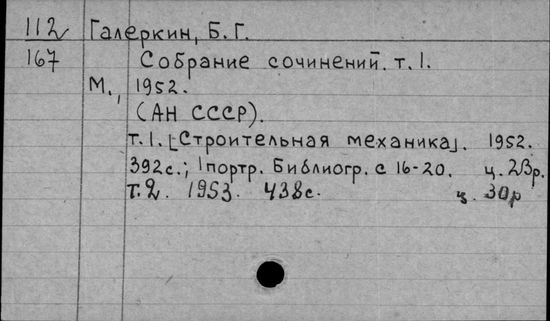 112 Галеркин, Б. Г.
167 Собрание сочинений. т. 1.
М., 1952.
(АН СССР).
т. 1. [Строительная механика]. 1952.
392с.; 1портр. Библиогр. с 16-20. ц. 23р.
т. 2. 1953. 438с. ц. 30р